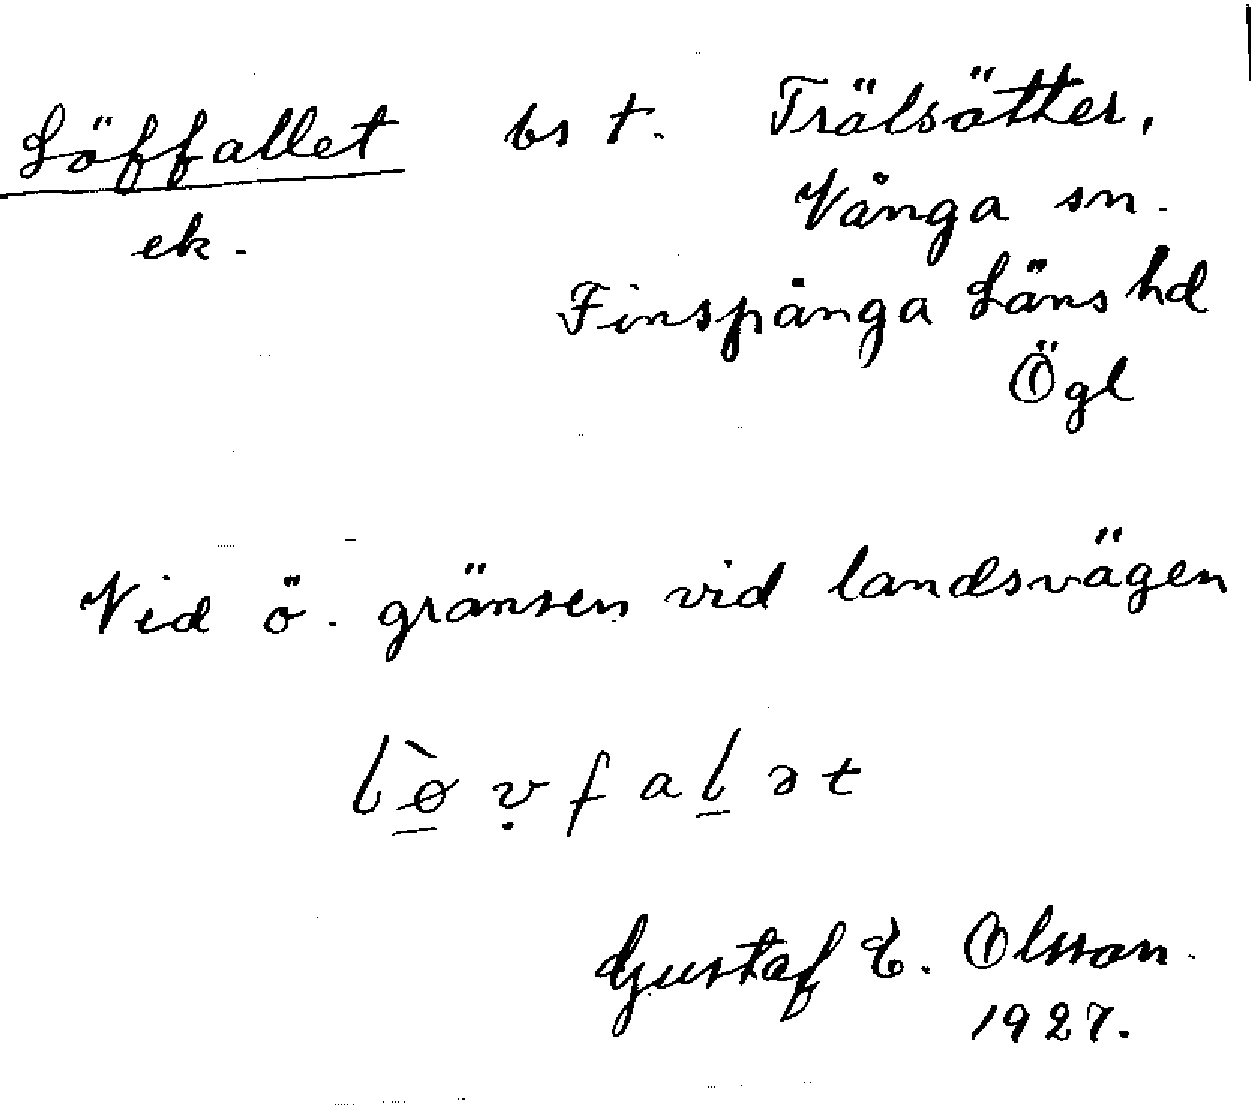 Löffallet bs t. Trälsätter,
ek. Vånga sn.
Finspånga Läns hd
Ögl
Vid ö. gränsen vid landsvägen
lø̀ṿfaḻət
Gustaf E. Olsson.
1927.